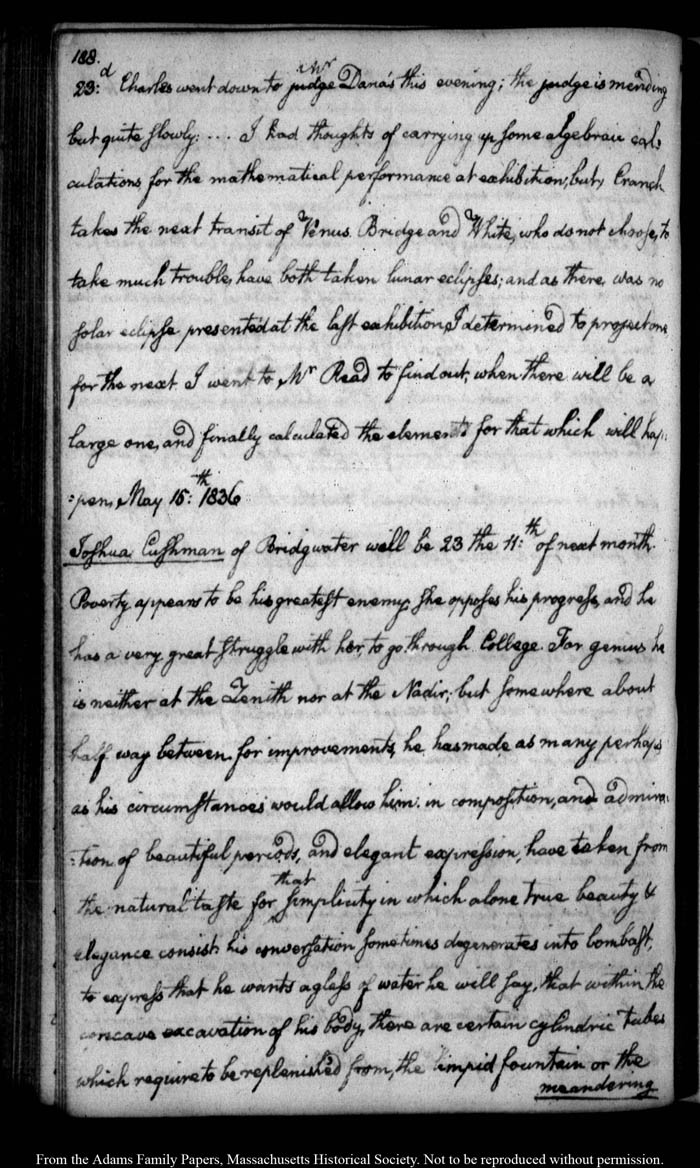 188.
23:d Charles went down to judge Mr Dana's this evening; the judge is mending
but quite slowly. ... I had thoughts of carrying up some algebraic cal-
culations for the mathematical performance at exhibition; but, Cranch
takes the next transit of Venus. Bridge and White, who do not choose, to
take much trouble, have both taken lunar eclipses; and as there, was no
solar eclipse presented at the last exhibition, I determined to project one
for the next. I went to Mr Read to find out, when there will be a
large one, and finally calculated the elements for that which will hap-
:pen, May 15:th 1836
Joshua Cushman of Bridgwater will be 23 the 11:th of next month.
Poverty appears to be his greatest enemy; she opposes his progress, and he
has a very great struggle with her, to go through College. For genius he
is neither at the Zenith nor at the Nadir; but somewhere about
half way between. for improvements, he has made as many perhaps
as his circumstances would allow him: in composition, and admira:
:tion of beautiful periods, and elegant expression, have taken from
the natural taste for that simplicity in which alone true beauty &
elegance consist. his conversation sometimes degenerates into bombast,
to express that he wants a glass of water he will say, that within the
concave excavation of his body, there are certain cylindric tubes
which require to be replenished from, the limpid fountain or the
meandering
From the Adams Family Papers, Massachusetts Historical Society. Not to be reproduced without permission.